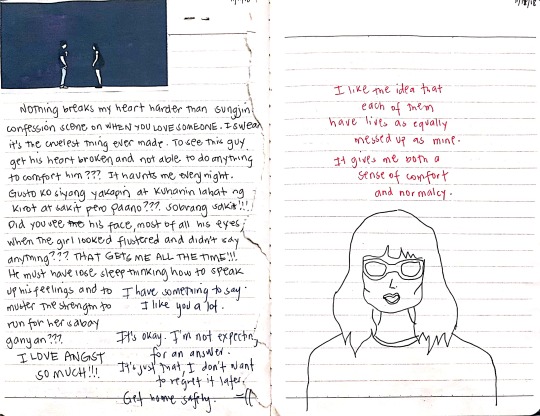 NOTHING breaks my heart harder than Sungjin
confession scene on WHEN YOU LOVE SOMEONE. I swear
it's the cruelest thing ever made. To see this guy
get his heart broken and not able to do anything
to comfort him??? It haunts me every night.
Gusto ko siyang yakapin at kuhanin lahat ng
kirot at sakit pero paano??? Sobrang sakit!!!
Did you see the his face, most of all his eyes,
when the girl looked flustered and didn't say
anything??? THAT GETS ME ALL THE TIME!!!
He must have lose sleep thinking how to speak
up his feelings and to
muster the strength to
run for her sabay
ganyan???
I LOVE ANGST
SO MUCH!!!
I have something to say.
I like you a lot.
It's okay. I'm not expecting
for an answer.
It's just that, I don't want
to regret it later.
Get home safely. =((
I like the idea that
each of them
have lives as equally
messed up as mine.
It gives me both a
sense of comfort
and normalcy.